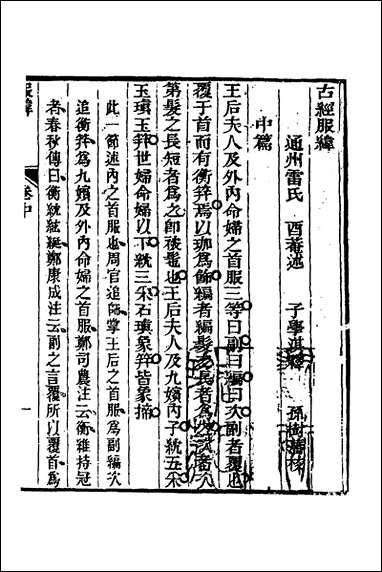 古經服緯
通州雷氏 酉菴述 子學淇釋 孫樹 校
中篇
王后夫人及外內命婦之首服三等曰副曰編曰次副者覆也
覆于首而有衡笄焉以珈為飾編者編髮為之次者次
第髮之長短者為之卽髲髢也王后夫人及九嬪內子紞五采
玉瑱玉笄世婦命婦以下紞三采石瑱象笄皆象揥
此一節述內之首服也周官追師掌王后之首服為副編次
追衡笄為九嬪及外內命婦之首服鄭司農注云衡維持冠
者春秋傳曰衡紞紘綖鄭康成注云副之言覆所以覆首為
服緯
卷中
一